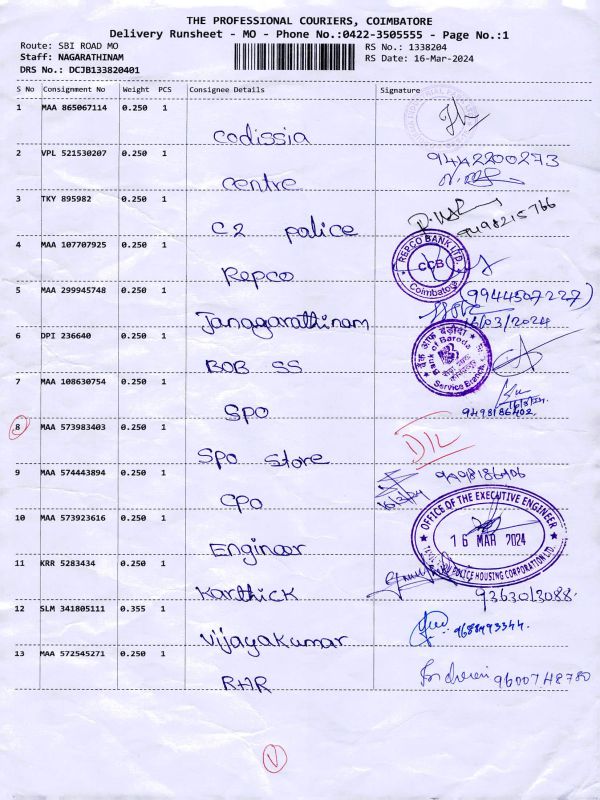 THE PROFESSIONAL COURIERS, COIMBATORE
Delivery Runsheet - MO - Phone No.:0422-3505555 - Page No.:1
Route: SBI ROAD MO
RS No.: 1338204
Staff: NAGARATHINAM
RS Date: 16-Mar-2024
DRS No.: DCJB133820401
S No Consignment No Weight PCS Consignee Details Signature
1 MAA 865067114 0.250 1
codissia
2 VPL 521530207 0.250 1 9442200273
centre
3 TKY 895982 0.250 1
C2 police 9498215766
4 MAA 107707925 0.250 1 REPCO BANK LTD CCB Coimbatore
Repco
5 MAA 299945748 0.250 1 (9944507227)
Janagarathinam 16/03/2024
6 DPI 236640 0.250 1 बैंक ऑफ़ बड़ौदा Bank of Baroda Service Branch
BOB SS
7 MAA 108630754 0.250 1 16/3/24.
SPO 9498186402
8 MAA 573983403 0.250 1 D/L
SPO Store
9 MAA 574443894 0.250 1 16/3/24 9498186406
CPO
10 MAA 573923616 0.250 1 OFFICE OF THE EXECUTIVE ENGINEER 16 MAR 2024 POLICE HOUSING CORPORATION LTD.
Engineer
11 KRR 5283434 0.250 1
Karthick 9363013088.
12 SLM 341805111 0.355 1 9688493344.
Vijayakumar
13 MAA 572545271 0.250 1 9600748780
RHR